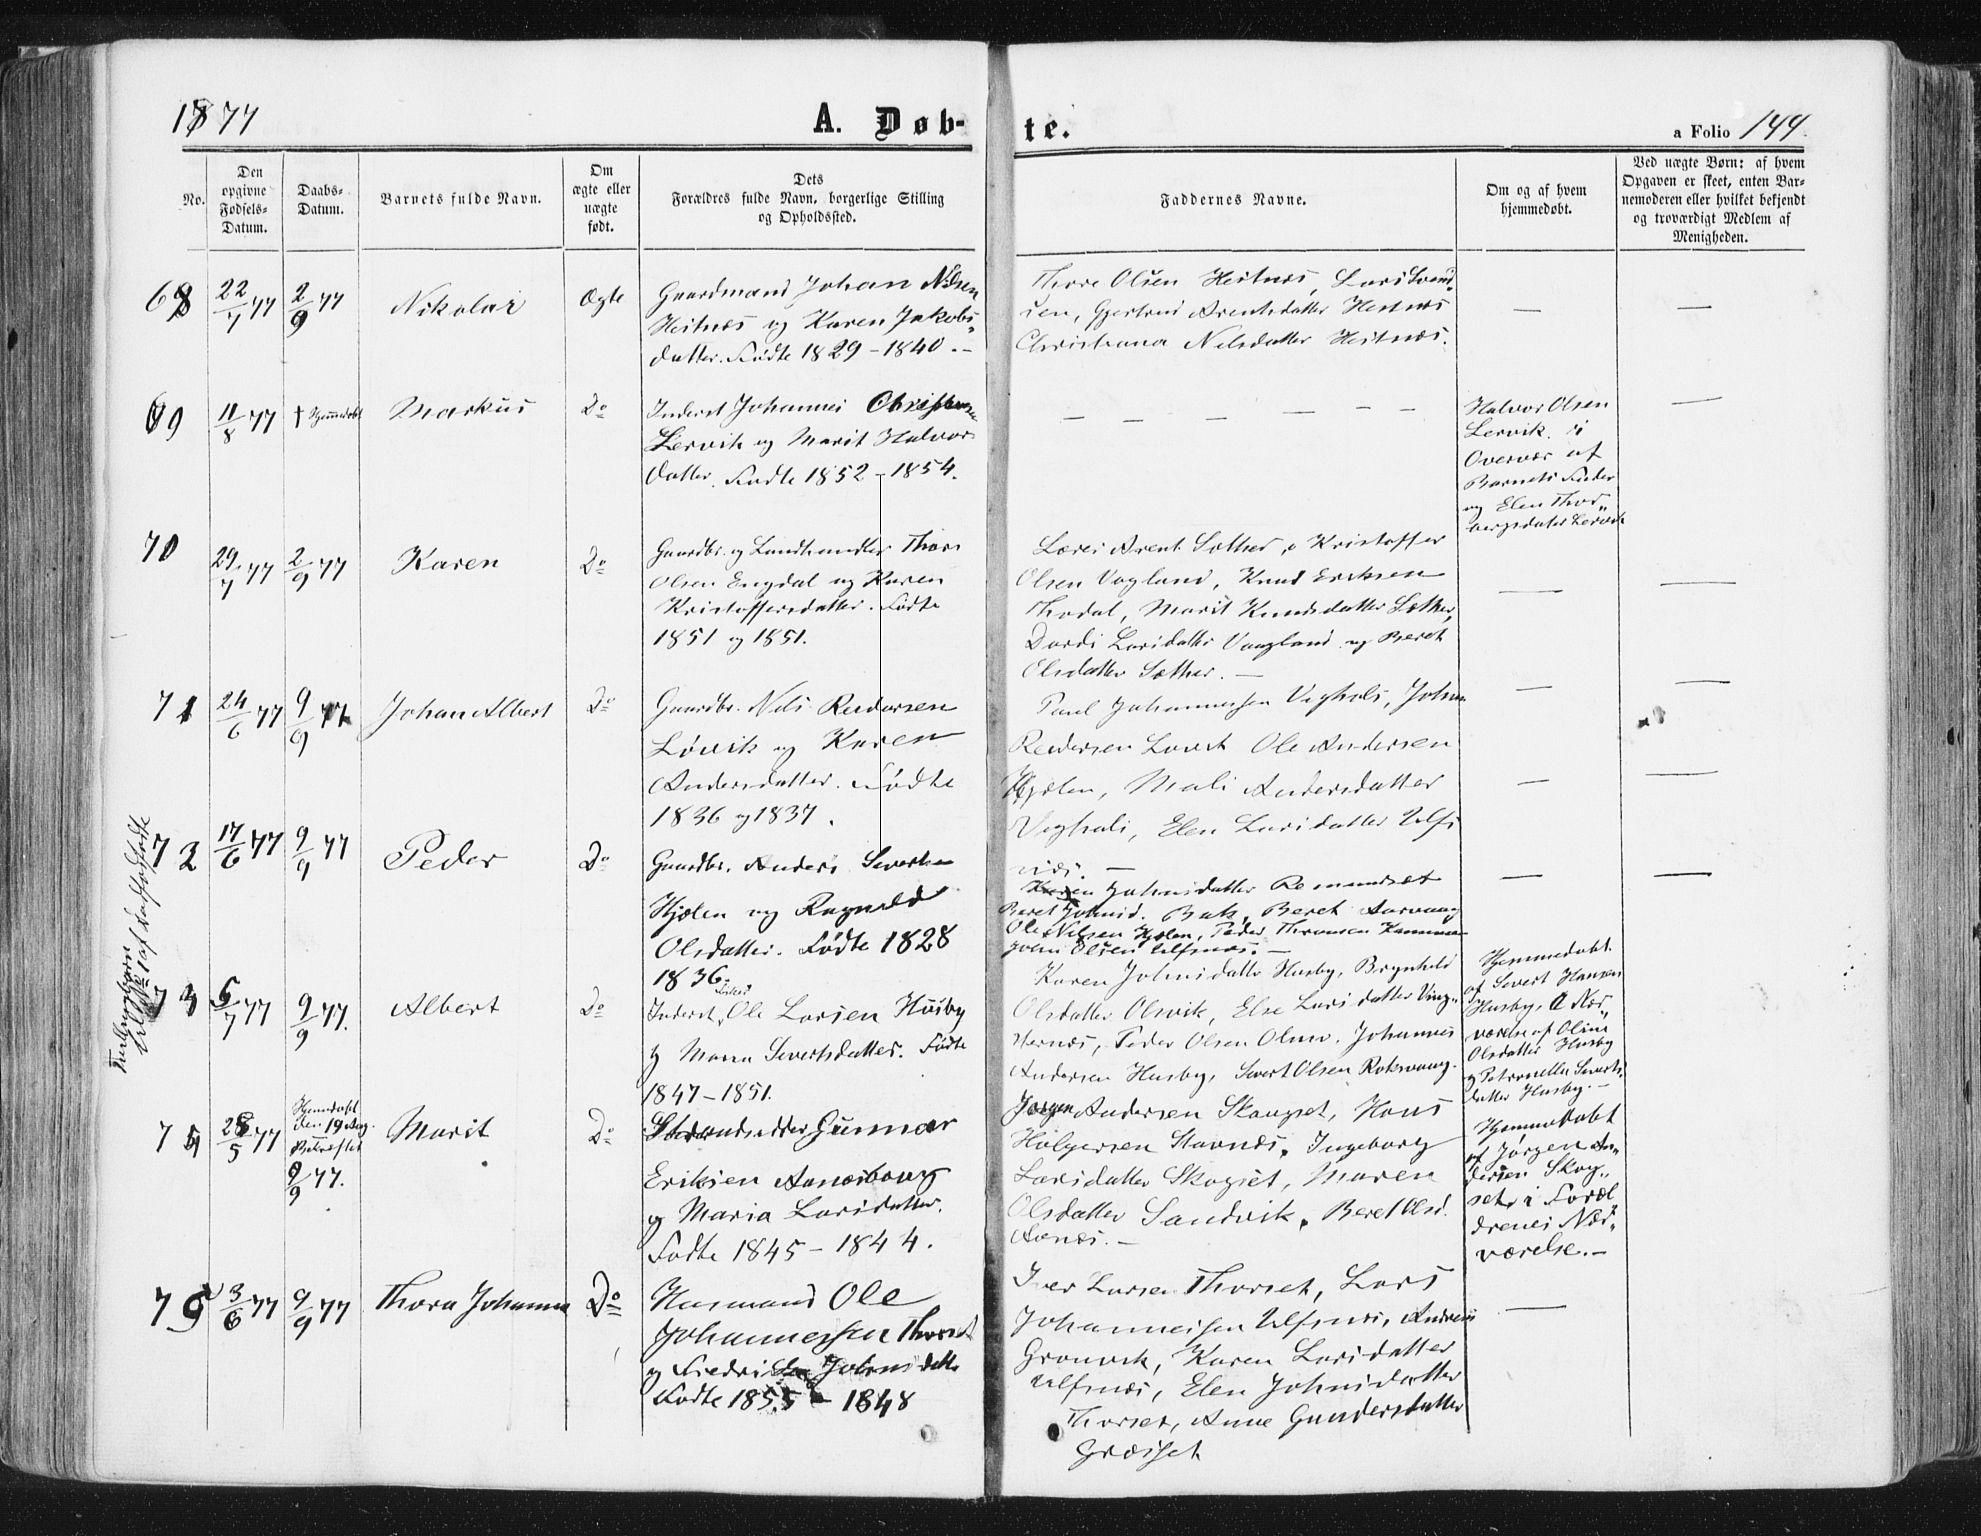 1877
A. Døb-
te.
a Folio 144.
No.
Den
opgivne
Fødsels-
Datum.
Daabs-
Datum.
Barnets fulde Navn.
Om
ægte eller
uægte
født.
Dets
Forældres fulde Navn, borgerlige Stilling
og Opholdssted.
Faddernes Navne.
Om og af hvem
hjemmedøbt.
Ved uægte Børn: af hvem
Opgaven er skeet, enten Bar-
nemoderen eller hvilket bekjendt
og troværdigt Medlem af
Menigheden.
68 22/7 77 2/9 77 Nikolai Ægte
Gaardmand Johan Nilsen
Heitnæs og Karen Jakobs-
datter. Fødte 1829 – 1840.
Thore Olsen Heitnæs, Lars Svend-
sen, Gjertrud Arentsdatter Heitnæs
Christiana Nilsdatter Heitnæs.
69 11/8 77 † Hjemmedøbt Markus Do
Inderst Johannes Christensen
Lervik og Marit Halvors
datter. Fødte 1852 – 1854.
Halvor Olsen
Lervik. i
Overvær af
Barnets Fader
og Elen Thor-
bergsdatter Lervik
70 29/7 77 2/9 77 Karen Do
Gaardbr. og Landhandler Thore
Olsen Engdal og Karen
Kristoffersdatter. Fødte
1851 og 1851.
Lærer Arent Sæther, Kristoffer
Olsen Vagland, Knud Eriksen
Thodal, Marit Knudsdatter Sæther,
Dordi Larsdatter Vaagland og Beret
Olsdatter Sæther. –
71 24/6 77 9/9 77 Johan Albert Do
Gaardbr. Nils Reidarsen
Løvik og Karen
Andersdatter. Fødte
1836 og 1837.
Paul Johannessen Veghals, Johan
Reidersen Lovik Ole Andersen
Hjelen, Mali Andersdatter
Veghals, Elen Larsdatter Ulfs
næs. –
72 17/6 77 9/9 77 Peder Do
Gaardbr. Anders Sivertsen
Hjælen og Ragnild
Olsdatter. Fødte 1828
1836.
Karen Johnsdatter Romundset
Beret Johnsd. Bak, Beret Aarvaag
Ole Nilsen Hjelen, Peder Thronsen
John Olsen Ulfsnæs. –
73 5/7 77 9/9 77. Albert Do
Inderst Ole Larsen Husby
og Maria Sivertsdatter. Fødte
1847 – 1851.
Karen Johnsdatter Husby, Brynhild
Olsdatter Olsvik, Else Larsdatter Ving-
sternæs, Peder Olsen, Johannes
Andersen Husby, Sivert Olsen Rokvaag.
Hjemmedøbt
af Sivert Hansen
Husby. I Nær-
værelse af Oline
Olsdatter Husby
og Petronelle Siverts-
datter Husby. –
74 28/5 77 Hjemdøbt
den 19 Aug.
Bekræftet
9/9 77. Marit Do
Strandsidder Gunnar
Eriksen
og Maria Larsdatter.
Fødte 1845 – 1844.
Jørgen Andersen Skogset, Hans
Holgersen Stavnæs, Ingeborg
Larsdatter Skogset, Maren
Olsdatter Sandvik, Beret Olsd.
Aanes. –
Hjemmedøbt
af Jørgen An-
dersen Skog-
set, i Foræl
drenes Nær-
værelse. –
75 3/6 77 9/9 77 Thora Johanna Do
Husmand Ole
Johannessen Thorset
og Fredrikke Johnsdatter
Fødte 1855 – 1848
Iver Larsen Thorset, Lars
Johannessen Ulfsnæs, Andreas
Gronvik, Karen Larsdatter
Ulfsnæs, Elen Johnsdatter
Thorset, Anne Gundersdatter
Græsset